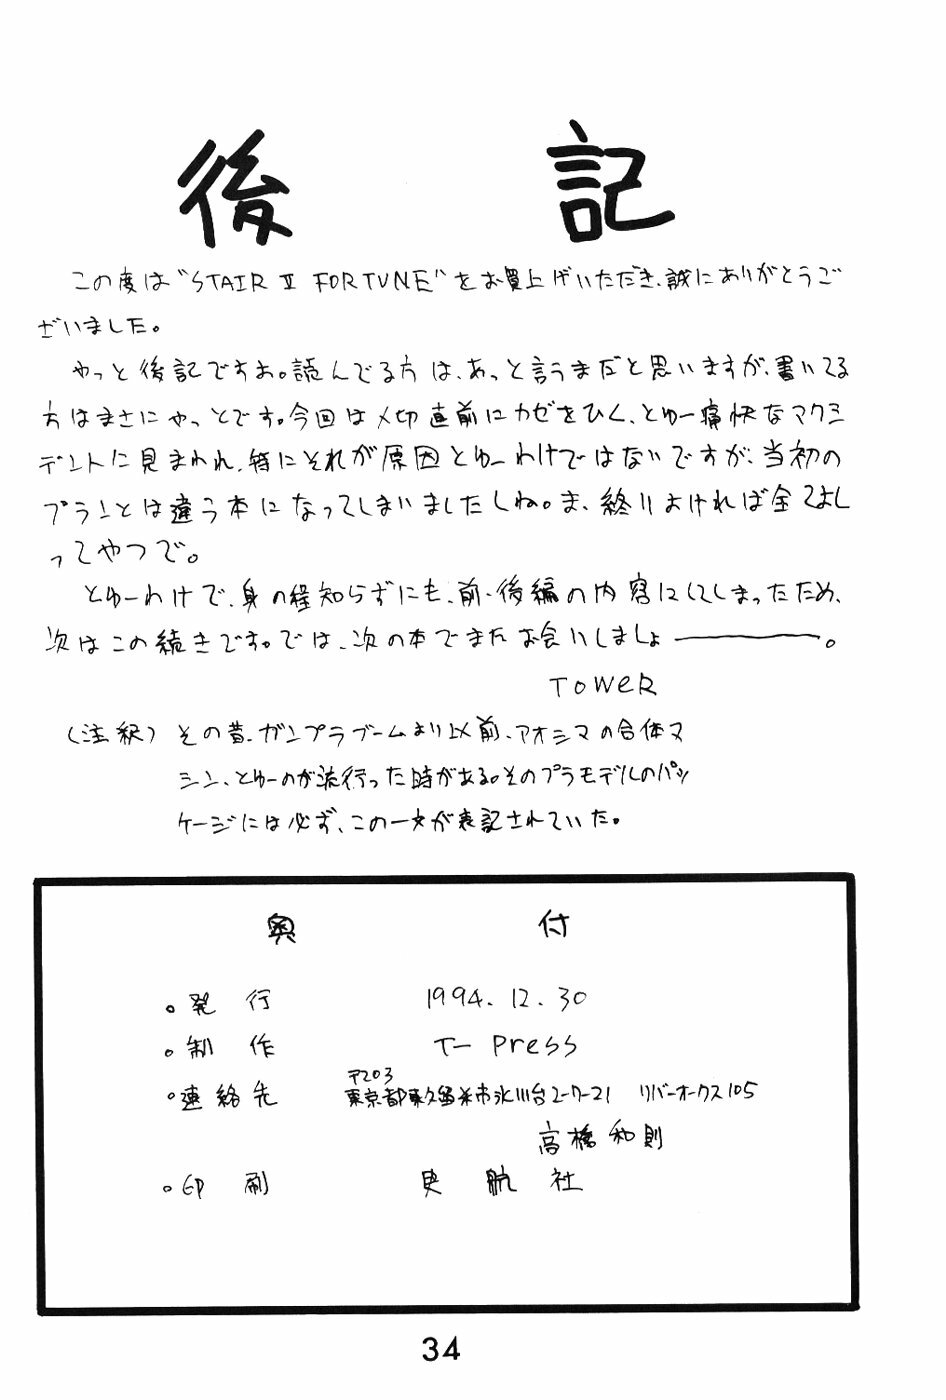 後記
この度は“STAIR Ⅱ FORTUNE”をお買上げいただき、誠にありがとうご
ざいました。
やっと後記ですお。読んでる方は、あっと言うまだと思いますが、書いてる
方はまさにやっとです。今回は〆切直前にカゼをひく、とゆー痛快なアクシ
デントに見まわれ、特にそれが原因とゆーわけではないですが、当初の
プランとは違う本になってしまいましたしね。ま、終りよければ全てよし
ってやつで。
とゆーわけで、身の程知らずにも、前・後編の内容にしてしまったため、
次はこの続きです。では、次の本でまたお会いしましょ―――。
TOWER
(注釈) その昔、ガンプラブームより以前、アオシマの合体マ
シン、とゆーのが流行った時がある。そのプラモデルのパッ
ケージには必ず、この一文が表記されていた。
奥付
。発行 1994.12.30
。制作 T-Press
〒203
。連絡先 東京都東久留米市氷川台2-7-21 リバーオークス105
高橋和則
。印刷 史航社
34